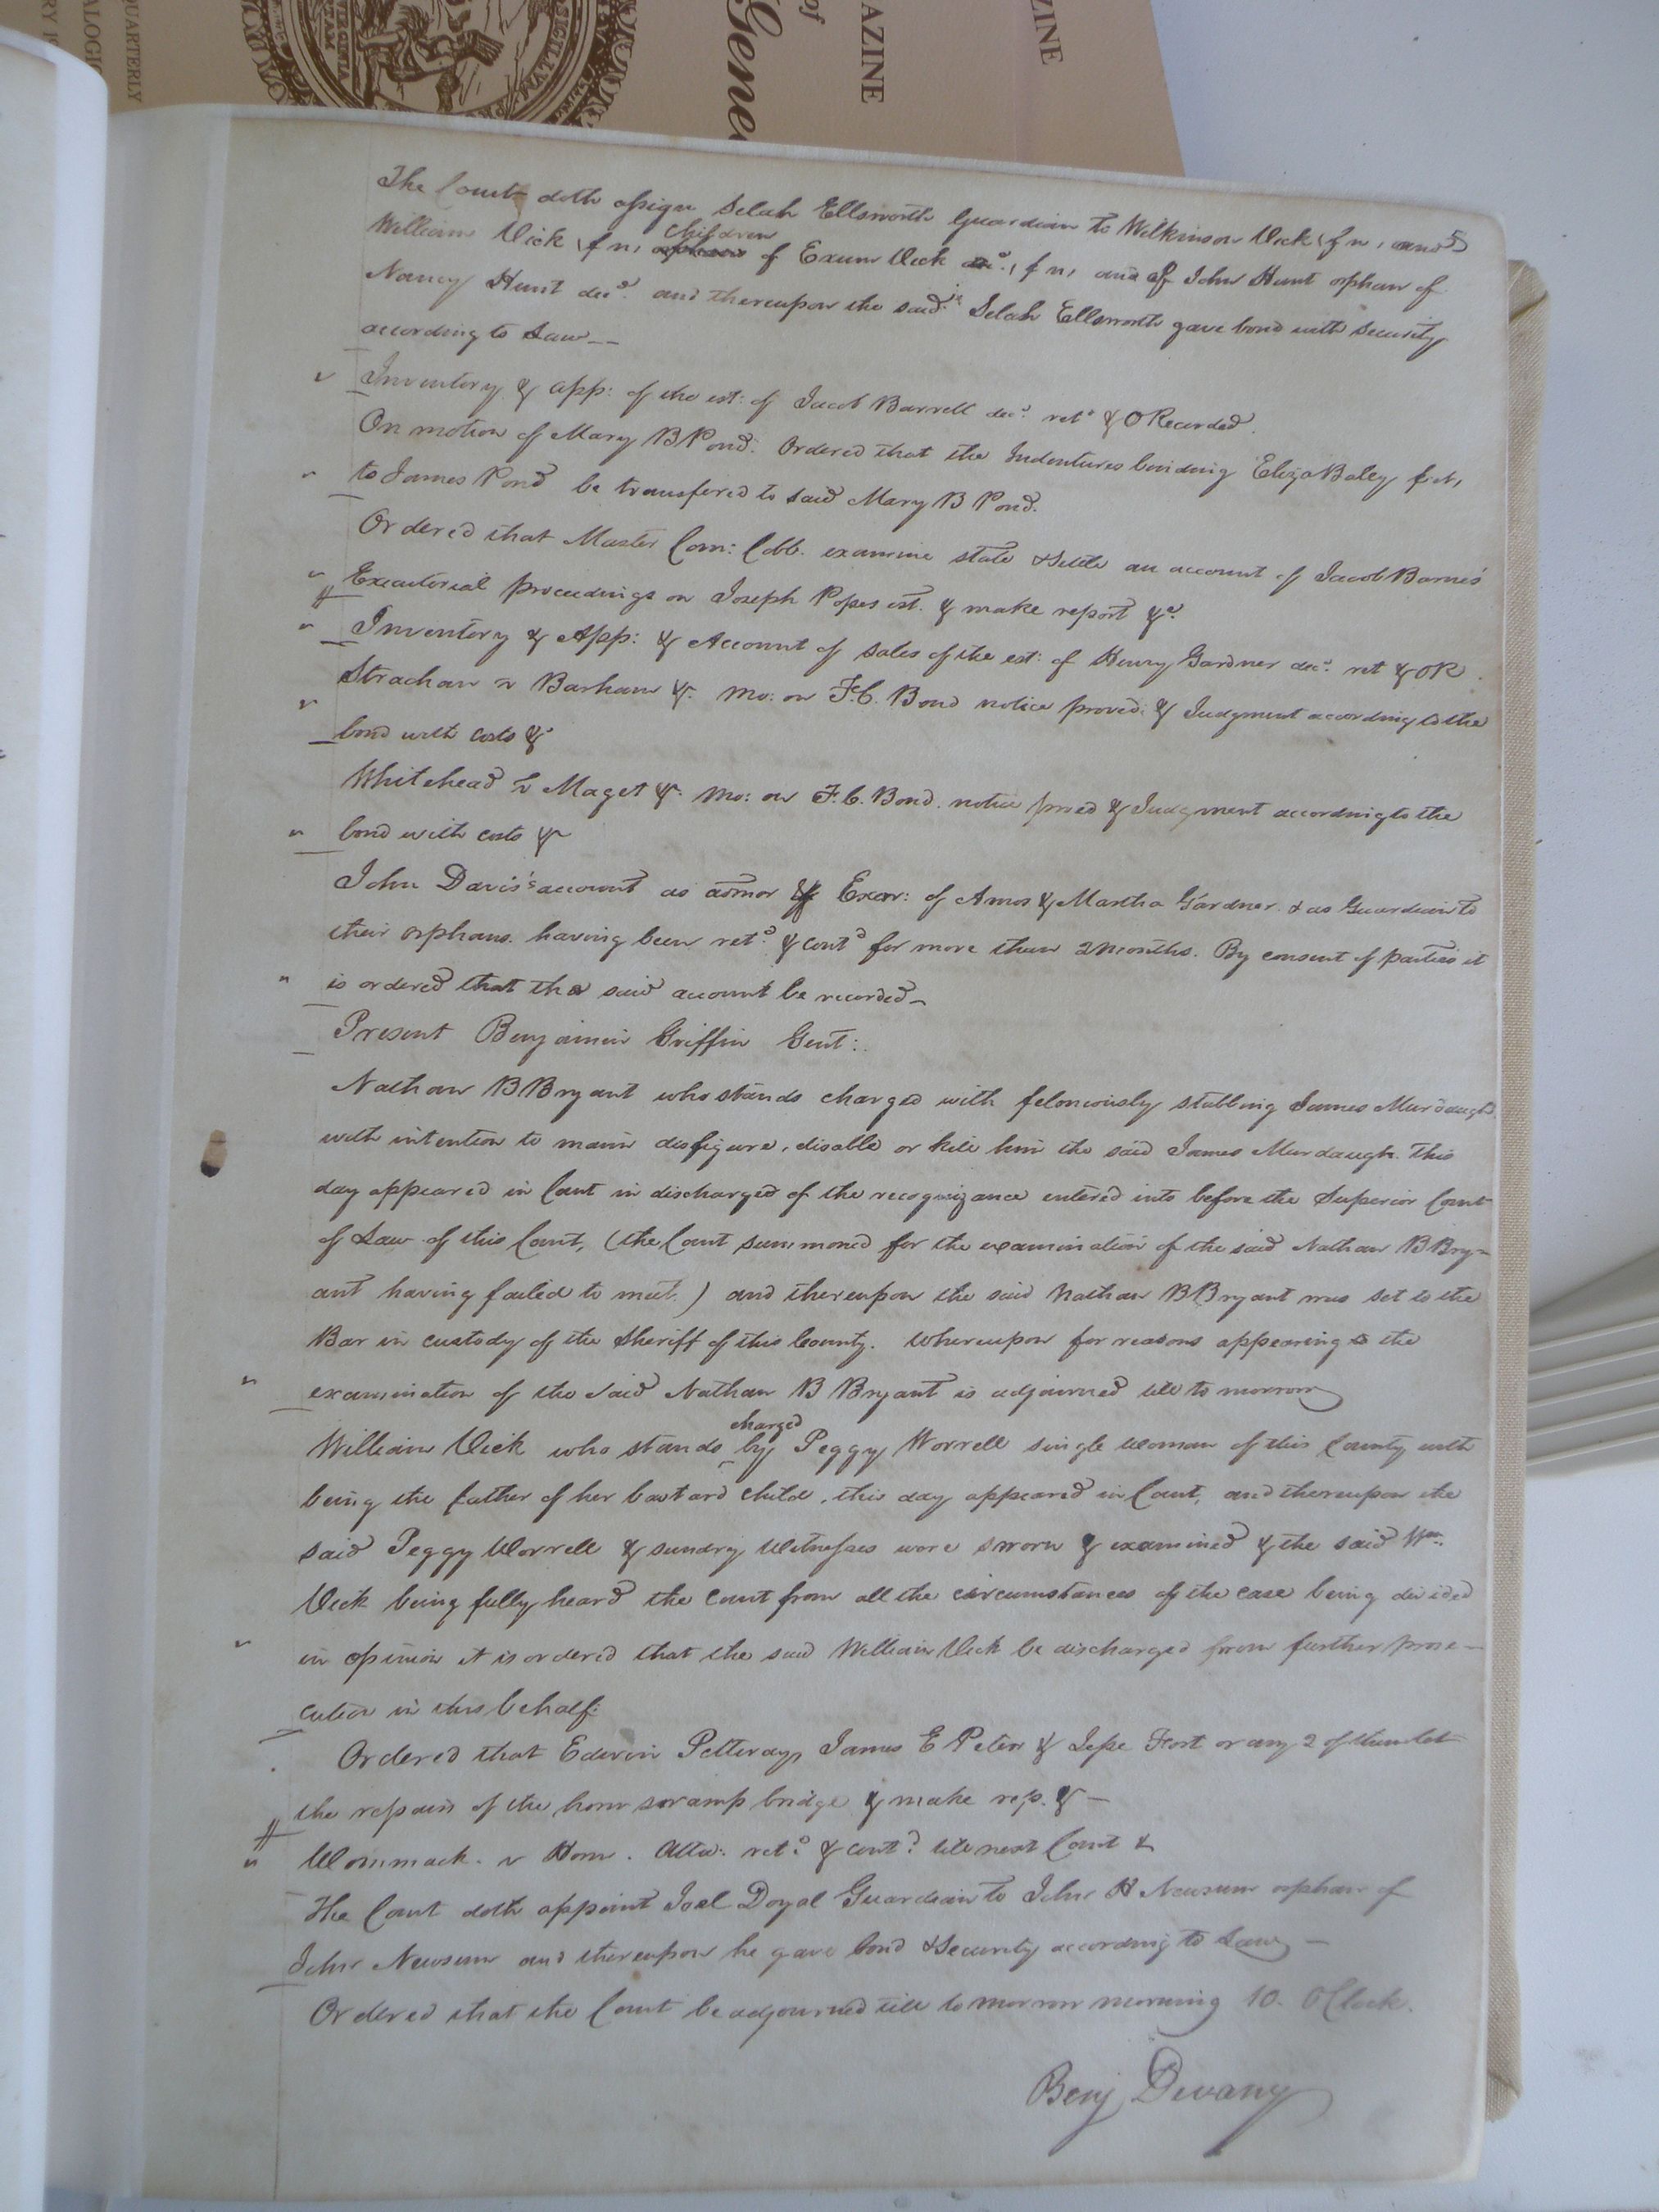 QUARTERLY
RY
ALOGIC
of
Gene
AZINE
ZINE
5
The Court doth assign Selah Ellsworth Guardian to Wilkinson Vick (f n) and
William Vick (f n) children of Exum Vick (f n) and of John Hunt orphan of
Nancy Hunt decd. and thereupon the said Selah Ellsworth gave bond with security
according to Law
Inventory & App: of the est: of Jacob Barrett decd. retd & O Recorded.
On motion of Mary B Pond. Ordered that the Indentures binding Eliza Baley f n,
to James Pond be transfered to said Mary B Pond.
Ordered that Master Com: Cobb. examine state & settle an account of Jacob Barnes'
Executorial proceedings on Joseph Popes est. & make report &c
Inventory & App: & Account of sales of the est: of Henry Gardner decd. ret & OR.
Strachan v Barham &. Mo: on F.C. Bond notice proved; & Judgment according to the
bond with costs &
Whitehead v Maget &. Mo: on F.C. Bond. notice proved & Judgment according to the
bond with costs &
John Davis's account as admor & Exor: of Amos & Martha Gardner & as Guardian to
their orphans. having been retd. & contd for more than 2 months. By consent of parties it
is ordered that the said account be recorded
Present Benjamin Griffin Gent:
Nathan B Bryant who stands charged with feloniously stabbing James Murdaugh
with intention to maim disfigure, disable or kill him the said James Murdaugh. this
day appeared in Court in discharged of the recognizance entered into before the Superior Court
of Law of this Court, (the Court summoned for the examination of the said Nathan B Bry-
ant having failed to meet.) and thereupon the said Nathan B Bryant was set to the
Bar in custody of the Sheriff of this County. Whereupon for reasons appearing to the
examination of the said Nathan B Bryant is adjourned till to morrow
William Vick who stands charged by Peggy Worrell single woman of this County with
being the father of her bastard child, this day appeared in Court, and thereupon the
said Peggy Worrell & sundry Witnesses were sworn & examined & the said Wm.
Vick being fully heard the Court from all the circumstances of the case being divided
in opinion it is ordered that the said William Vick be discharged from further prose-
cution in this behalf.
Ordered that Edwin Pettway, James E Peters & Jesse Fort or any 2 of them let
the repairs of the swamp bridge & make rep. &
Wommack v Horn. Atta: retd. & contd. till next Court &
The Court doth appoint Joel Doyal Guardian to John H Newsum orphan of
John Newsum and thereupon he gave bond & Security according to Law
Ordered that the Court be adjourned till to morrow morning 10. OClock.
Benj Devany